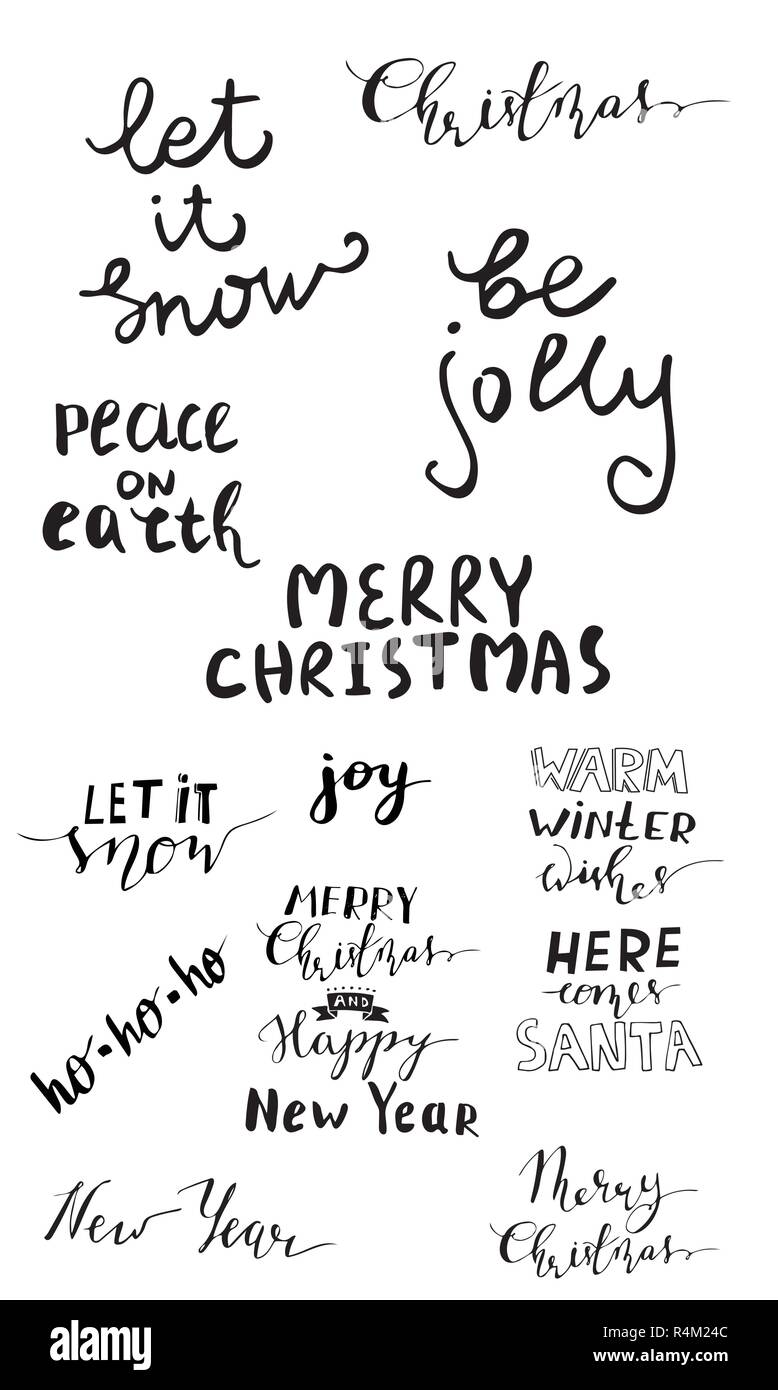 let
it
snow
Christmas
be
jolly
peace
ON
earth
MERRY
CHRISTMAS
LET iT
snow
joy
WARM
WiNtER
wishes
ho•ho•ho
MERRY
Christmas
AND
Happy
New Year
HERE
comes
SANTA
New Year
Merry
Christmas
alamy
Image ID: R4M24C
www.alamy.com